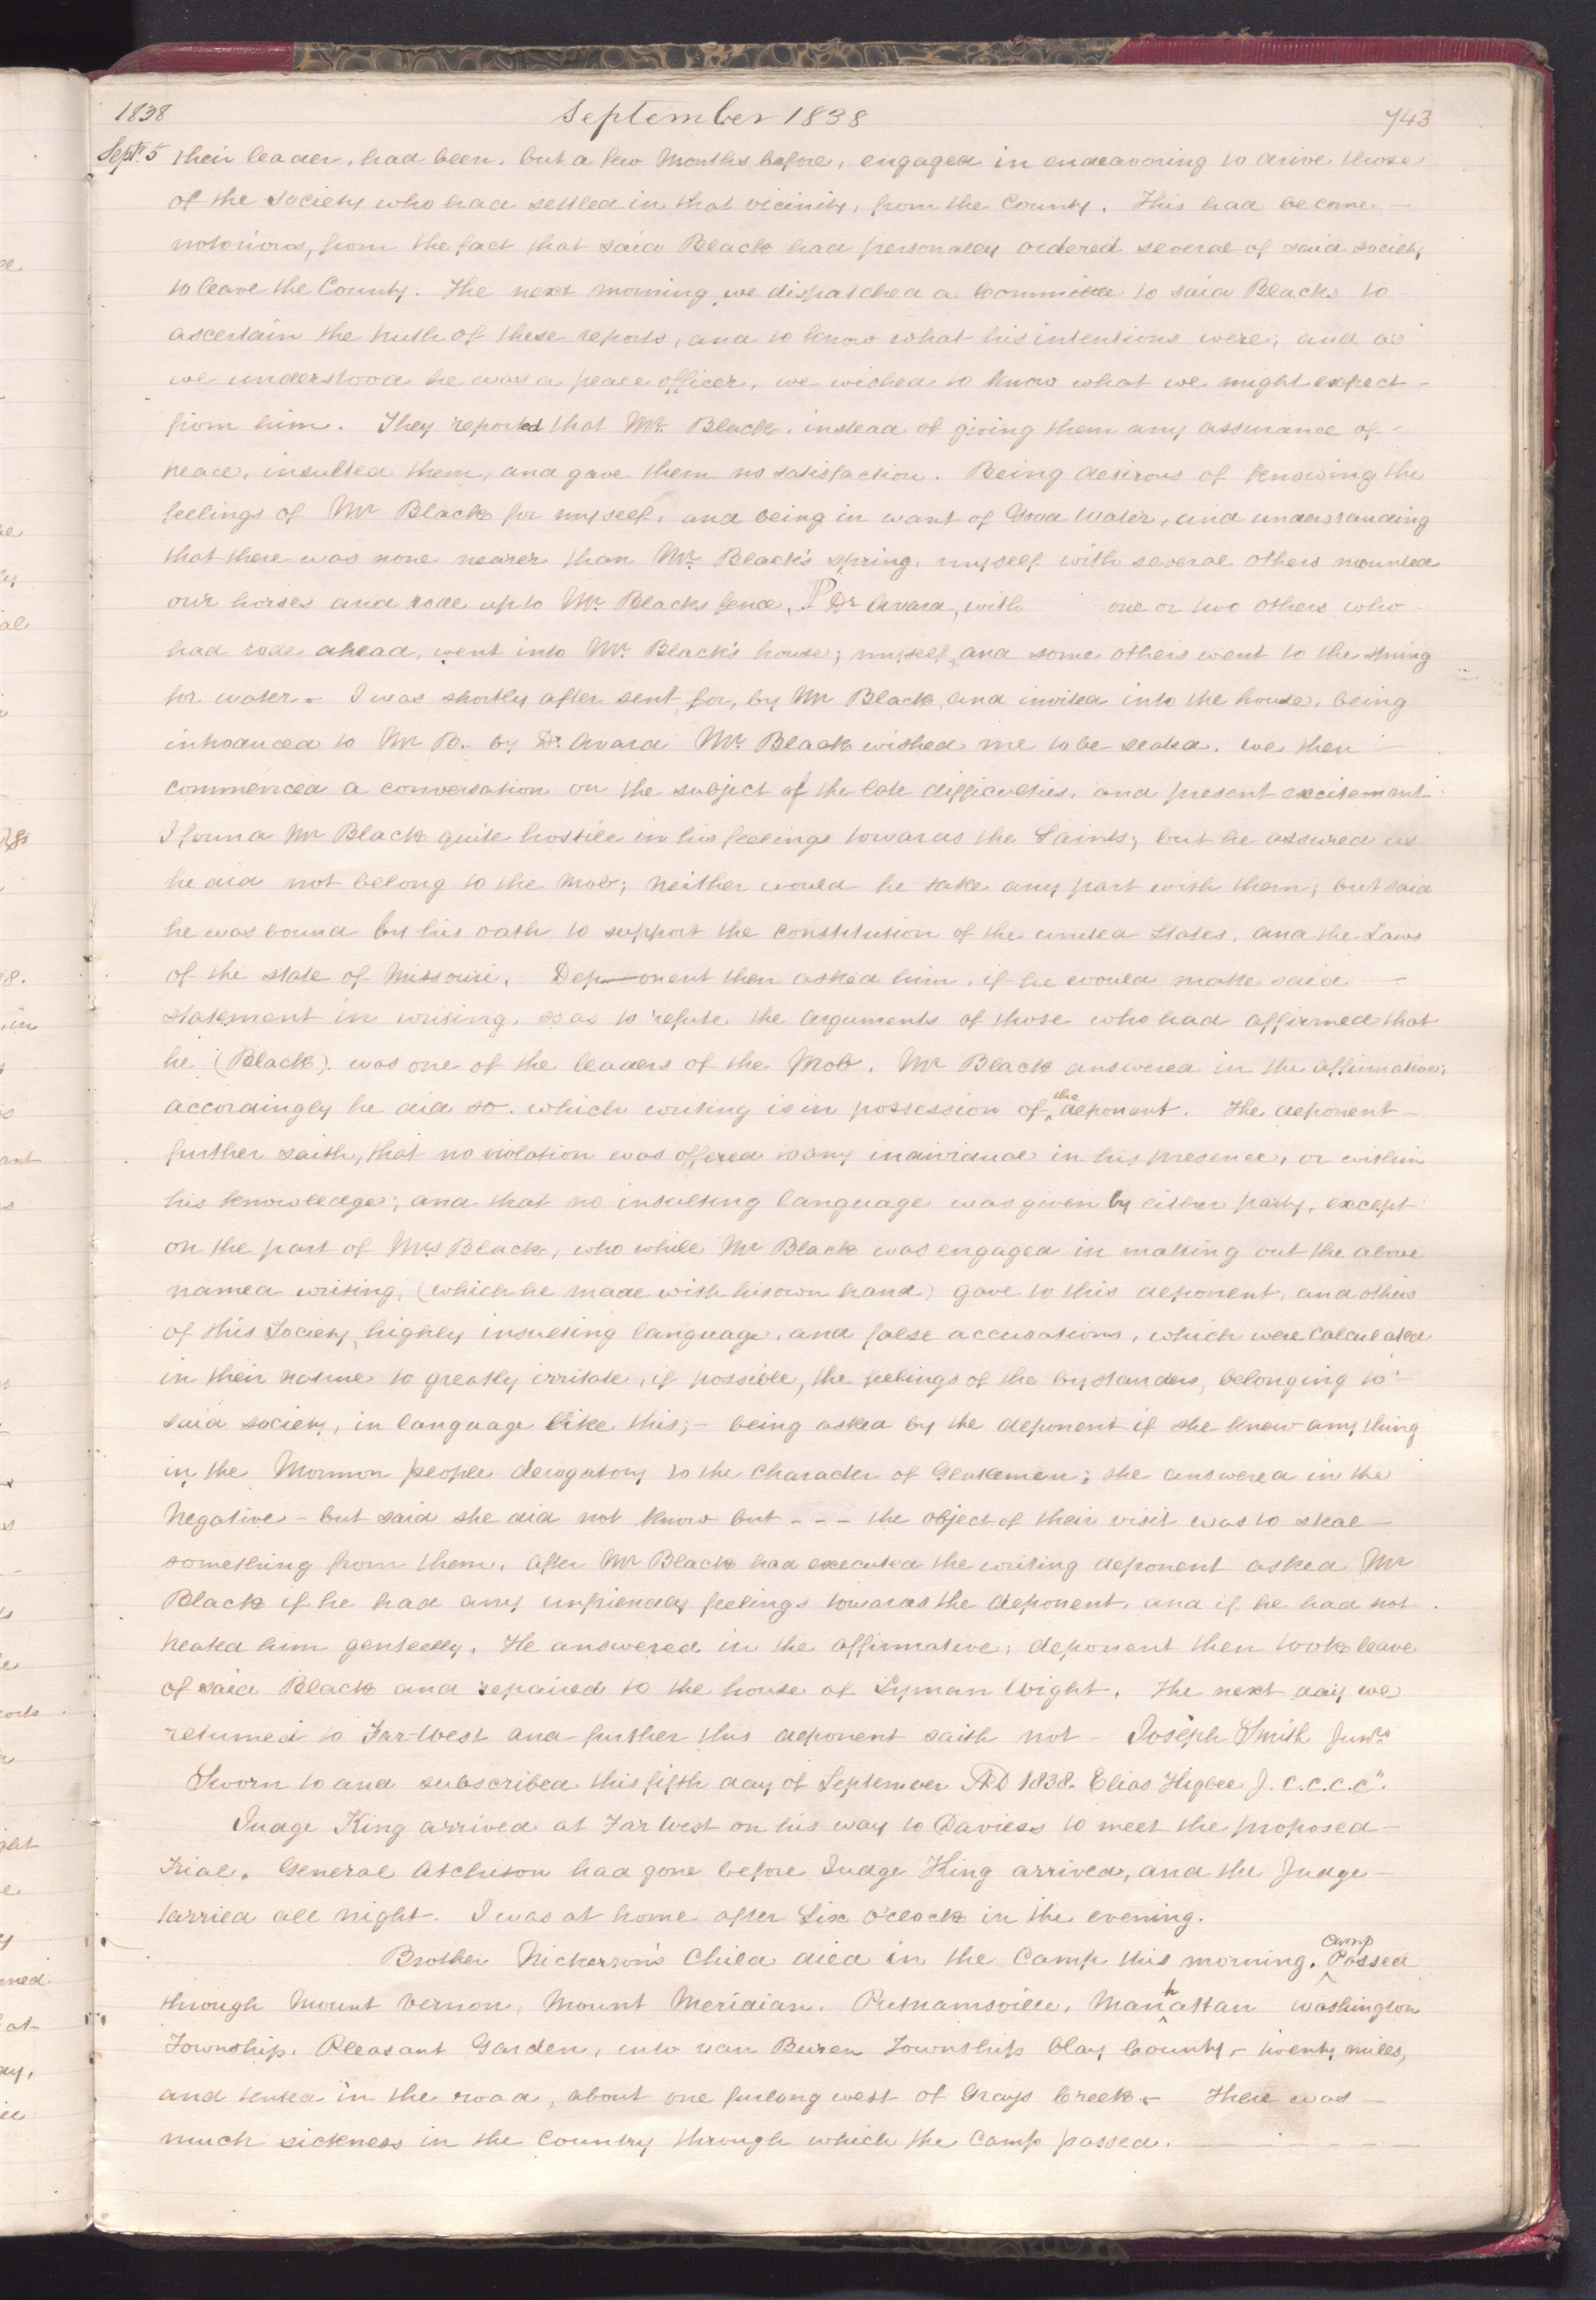 1838 September 1838 743
Sept. 5 their leader, had been, but a few Months before, engaged in endeavoring to drive those
of the Society who had settled in that vicinity, from the County. This had become —
notorious, from the fact that said Black had personally ordered several of said society
to leave the County. The next morning we dispatched a Committee to said Black to
ascertain the truth of these reports, and to know what his intentions were; and as
we understood he was a peace officer, we wished to know what we might expect –
from him. They reported that Mr. Black, instead of giving them any assurance of –
peace, insulted them, and gave them no satisfaction. Being desirous of knowing the
feelings of Mr Black for myself, and being in want of Good Water, and understanding
that there was none nearer than Mr. Black's spring, myself with several others mounted
our horses and rode up to Mr. Blacks fence. P Dr Avard, with one or two others who –
had rode ahead, went into Mr. Black's house; myself, and some others went to the spring
for water – I was shortly after sent for, by Mr Black, and invited into the house, being
introduced to Mr B. by Dr. Avard Mr. Black wished me to be seated. we then –
commenced a conversation on the subject of the late difficulties, and present excitement.
I found Mr Black quite hostile in his feelings towards the Saints; but he assured us
he did not belong to the Mob; neither would he take any part with them; but said
he was bound by his oath to support the constitution of the united States, and the Laws
of the state of Missouri. Dep—onent then asked him, if he would make said —
statement in writing, so as to refute the arguments of those who had affirmed that
he (Black) was one of the leaders of the Mob. Mr Black answered in the affirmative,
accordingly he did so. which writing is in possession of ^the deponent. The deponent –
further saith, that no violation was offered to any individual in his presence, or within
his knowledge; and that no insulting language was given by either party, except
on the part of Mrs Black, who while Mr Black was engaged in making out the above
named writing, (which he made with his own hand) gave to this deponent, and others
of this Society, highly insulting language, and false accusations, which were calculated
in their nature to greatly irritate, if possible, the feelings of the bystanders, belonging to
said society, in language like this; – being asked by the deponent if she knew any thing
in the Mormon people derogatory to the character of Gentlemen; she answered in the
Negative – but said she did not know but - - - the object of their visit was to steal –
something from them. After Mr Black had executed the writing deponent asked Mr
Black if he had any unfriendly feelings towards the deponent, and if he had not
treated him genteelly. He answered in the affirmative; deponent then took leave
of said Black and repaired to the house of Lyman Wight. The next day we
returned to Far-West and further this deponent saith not – Joseph Smith Junr.
Sworn to and subscribed this fifth day of September AD 1838. Elias Higbee J. C. C. C. C".
Judge King arrived at Far West on his way to Daviess to meet the proposed –
Trial. General Atchison had gone before Judge King arrived, and the Judge –
tarried all night. I was at home after Six o'clock in the evening.
Brother Nickerson's Child died in the Camp this morning. ^Camp Passed
through Mount Vernon, Mount Meridian, Putnamsville, Man^hattan Washington
Township. Pleasant Garden, into van Buren Township Clay County, – twenty miles,
and tented in the road, about one furlong west of Grays Creek – There was –
much sickness in the country through which the Camp passed. — — —